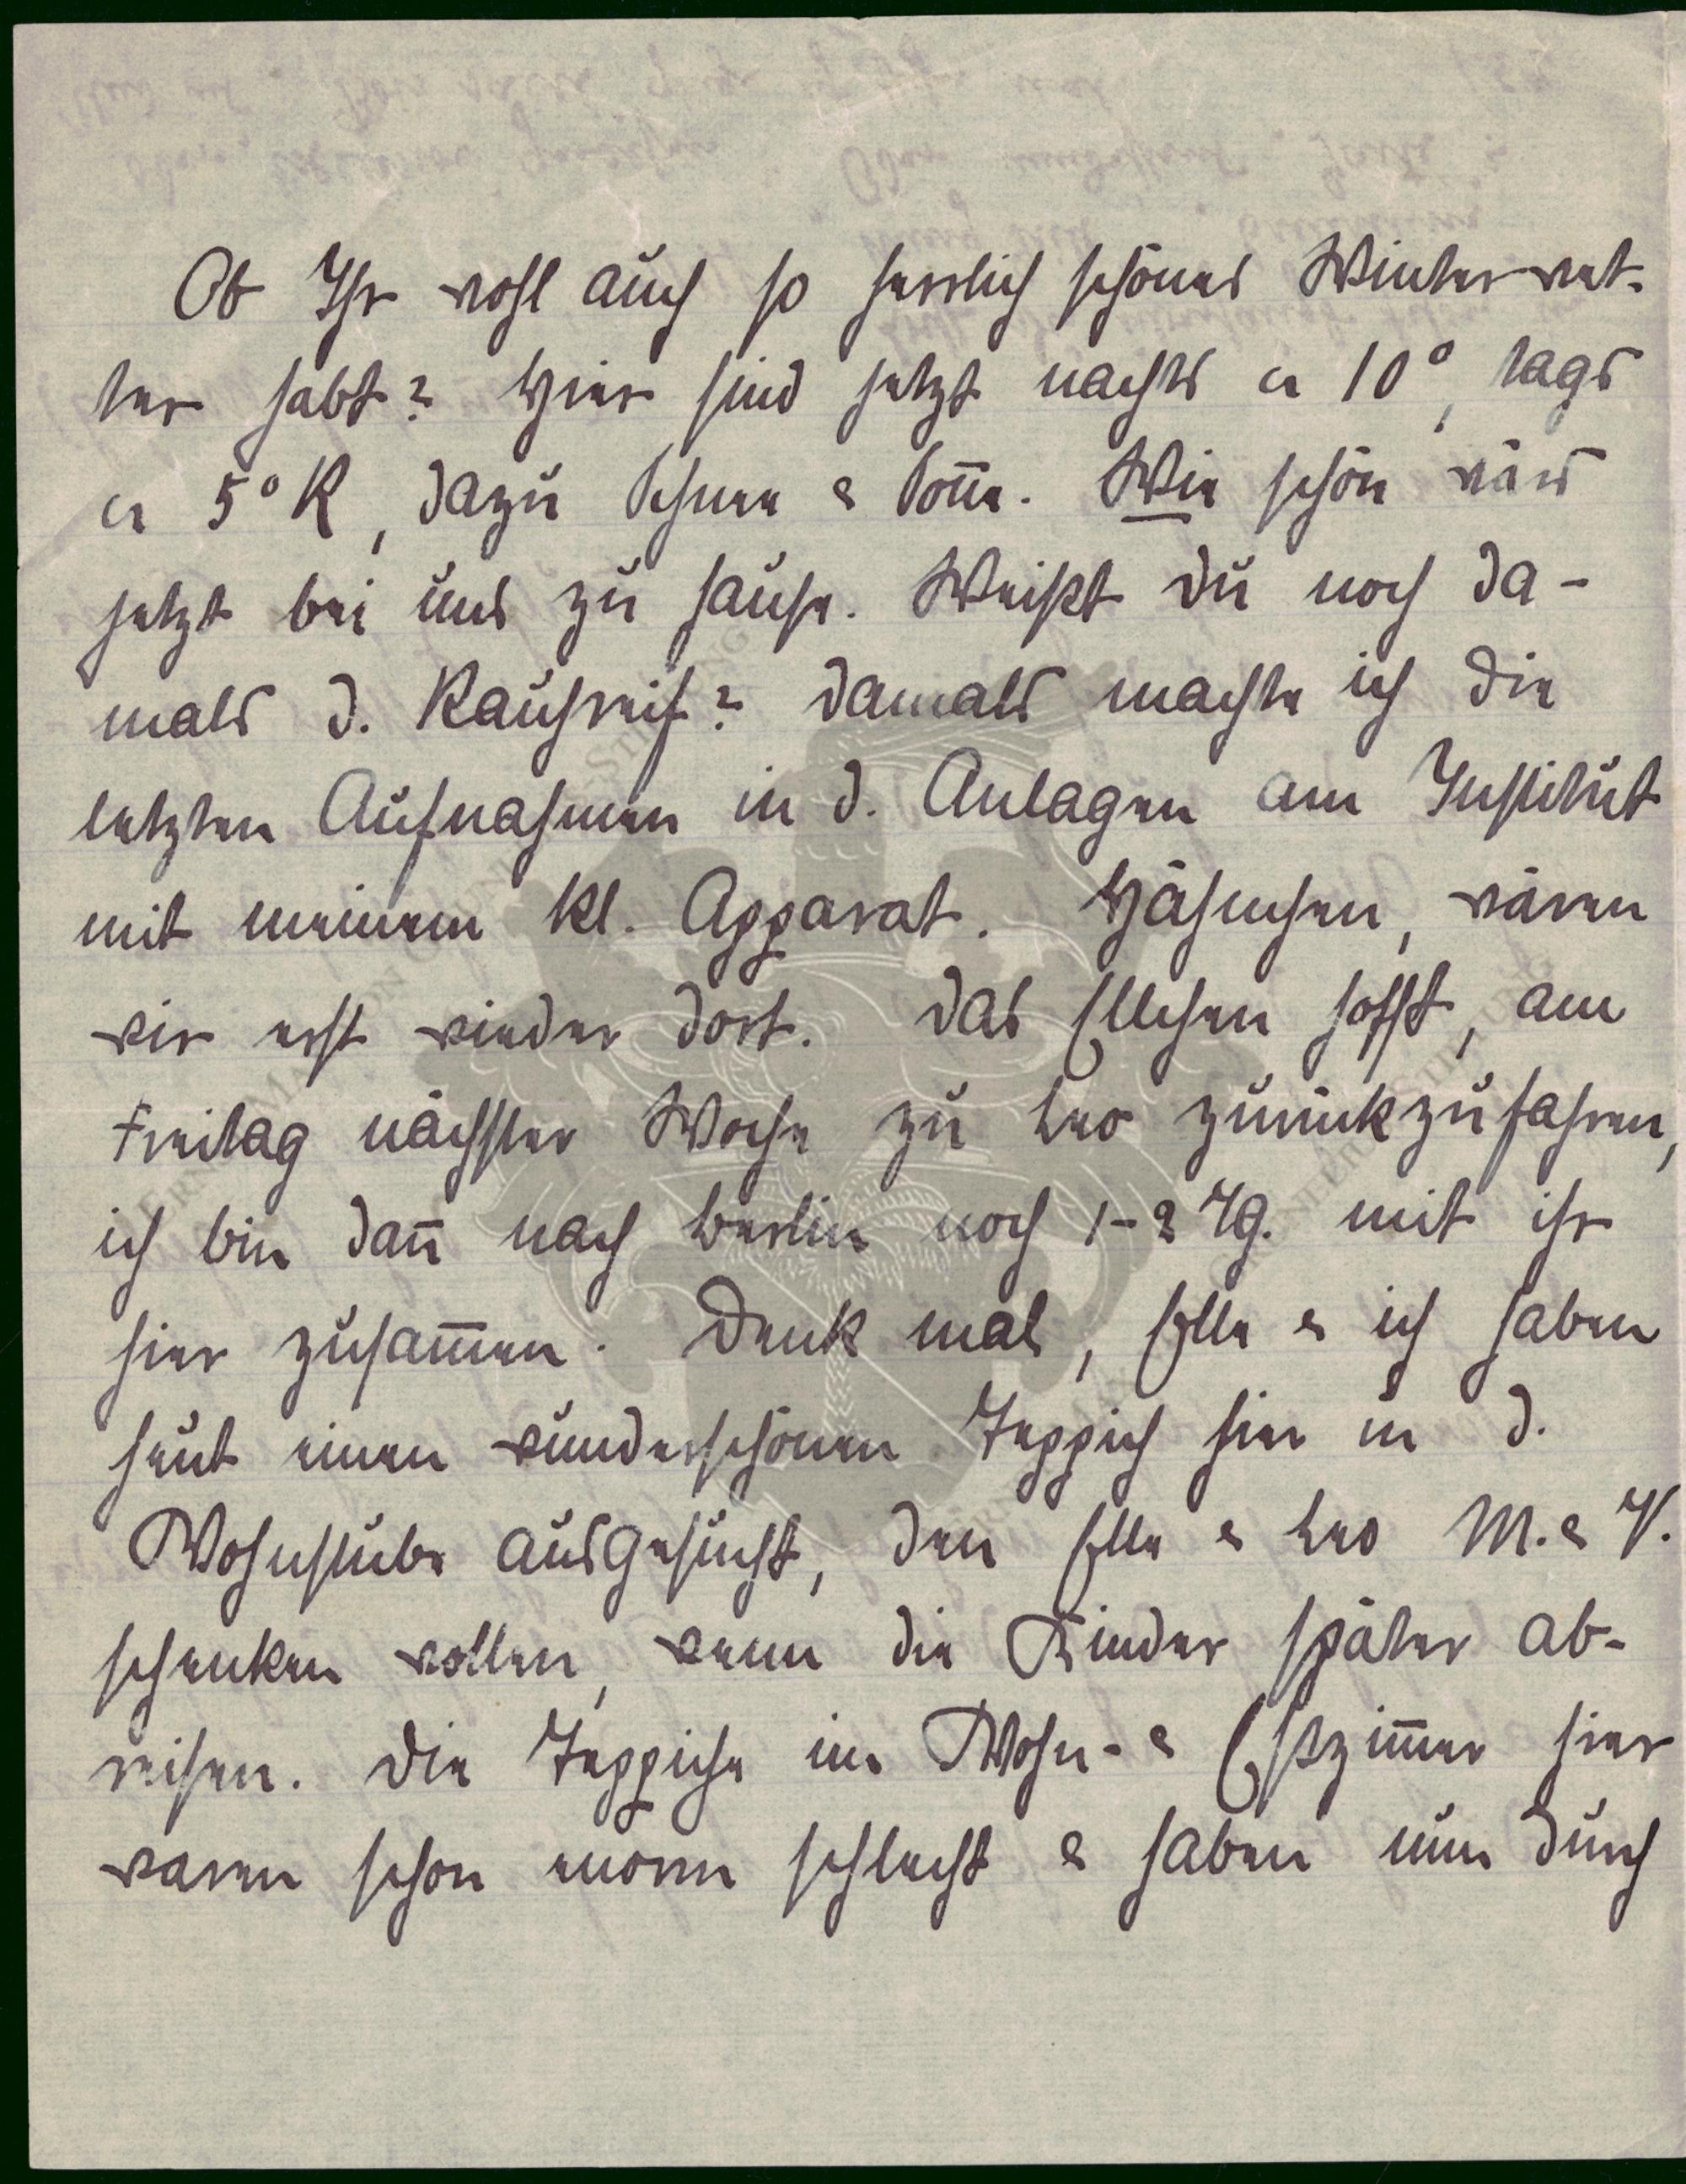 Ob Ihr wohl auch so herrlich schönes Winterwet-
ter habt? Hier sind jetzt nachts ca 10°, tags
ca 5° K, dazu Schnee & Soñe. Wie schön wärs
jetzt bei uns zu hause. Weißt du noch da-
mals d. Rauhreif? Damals machte ich die
letzten Aufnahmen in d. Anlagen am Institut
mit meinem kl. Apparat. Häschen, wären
wir erst wieder dort. Das Ellchen hofft, am
Freitag nächster Woche zu Leo zurückzufahren,
ich bin dañ nach Berlin noch 1-2 Tg. mit ihr
hier zusam̄en. Denk mal, Ella & ich haben
heut einen wunderschönen Teppich hier in d.
Wohnstube ausgesucht, den Ella & Leo M. & V.
schenken wollen, wenn die Kinder später ab-
reisen. Die Teppiche im Wohn- & Eßzim̄er hier
waren schon enorm schlecht & haben nun durch